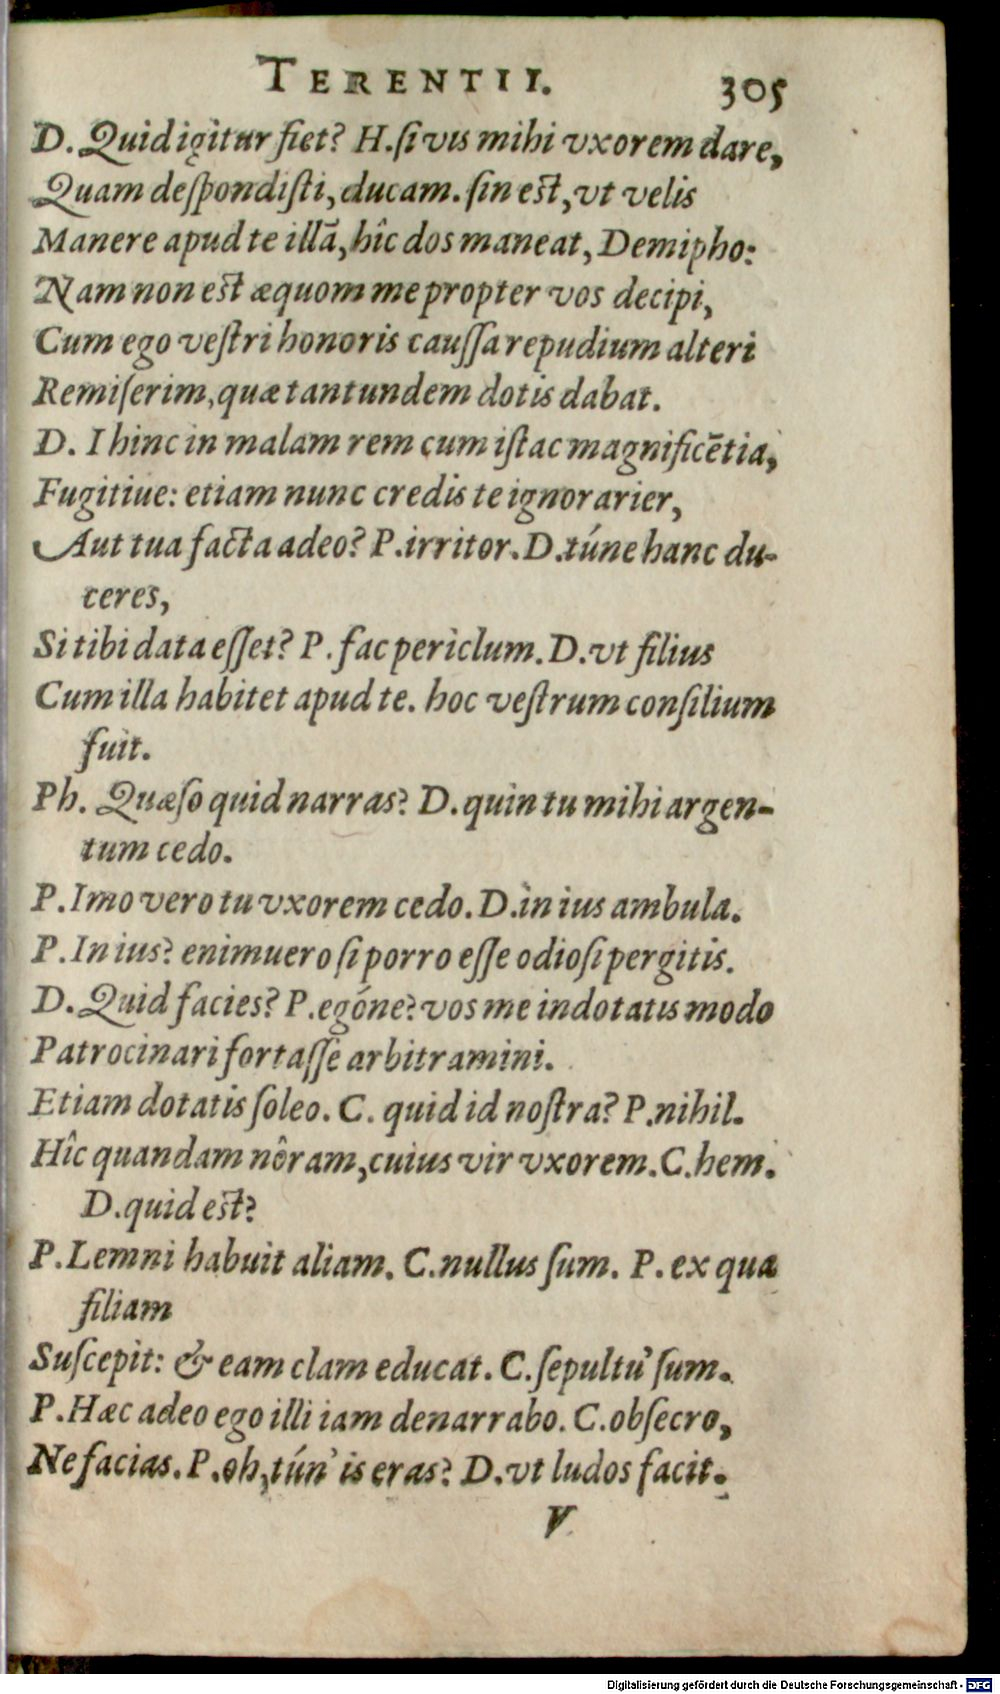 TERENTII. 305
D. Quid igitur fiet? H. ſi vis mihi vxorem dare,
Quam deſpondiſti, ducam. ſin eſt, vt velis
Manere apud te illā, hîc dos maneat, Demipho:
Nam non eſt æquom me propter vos decipi,
Cum ego veſtri honoris cauſſa repudium alteri
Remiſerim, quæ tantundem dotis dabat.
D. I hinc in malam rem cum iſtac magnificētia,
Fugitiue: etiam nunc credis te ignorarier,
Aut tua facta adeo? P. irritor. D. túne hanc du-
ceres,
Si tibi data eſſet? P. fac periclum. D. vt filius
Cum illa habitet apud te. hoc veſtrum conſilium
fuit.
Ph. Quæſo quid narras? D. quin tu mihi argen-
tum cedo.
P. Imo vero tu vxorem cedo. D. in ius ambula.
P. In ius? enimuero ſi porro eſſe odioſi pergitis.
D. Quid facies? P. egóne? vos me indotatis modo
Patrocinari fortaſſe arbitramini.
Etiam dotatis ſoleo. C. quid id noſtra? P. nihil.
Hîc quandam nôram, cuius vir vxorem. C. hem.
D. quid eſt?
P. Lemni habuit aliam. C. nullus ſum. P. ex qua
filiam
Suſcepit: & eam clam educat. C. ſepultu' ſum.
P. Hæc adeo ego illi iam denarrabo. C. obſecro,
Ne facias. P. oh, tún' is eras? D. vt ludos facit.
V
Digitalisierung gefördert durch die Deutsche Forschungsgemeinschaft - DFG